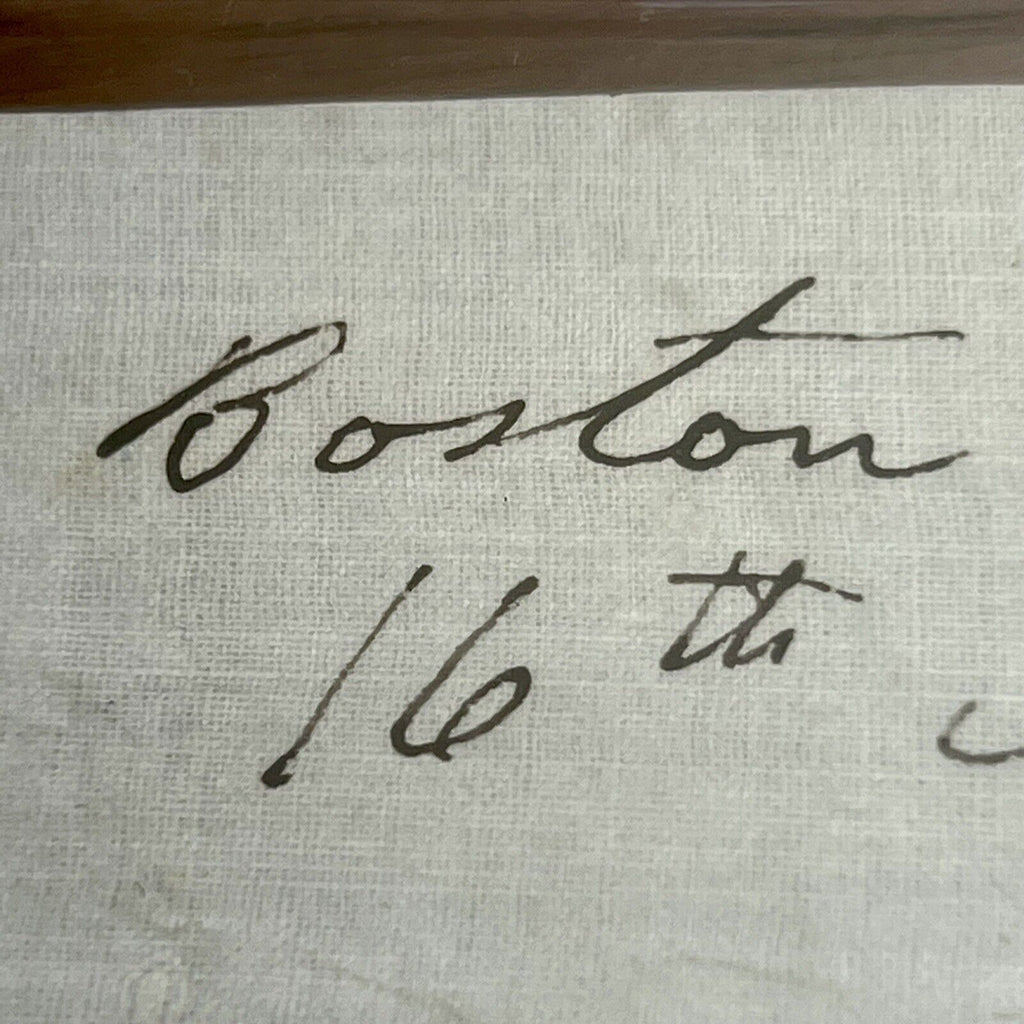 Boston
16th